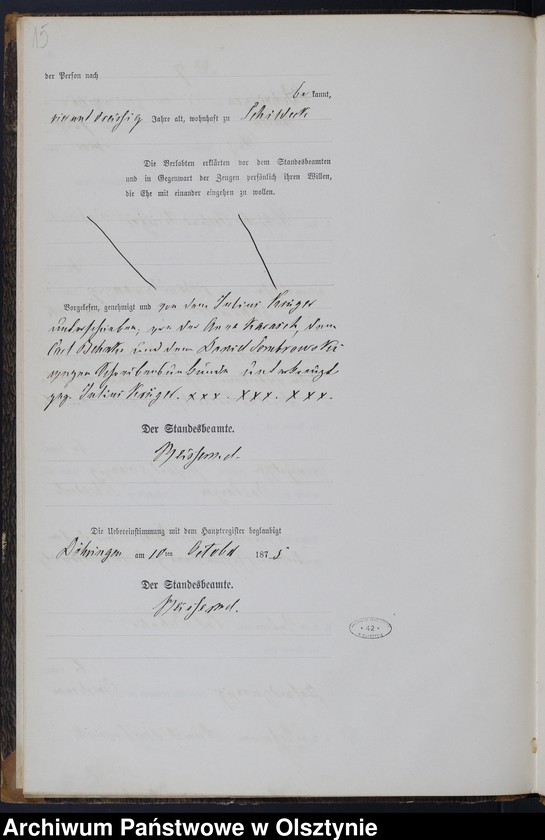 15
der Person nach
be kannt,
vierunddreißig Jahre alt, wohnhaft zu Schildeck
Die Verlobten erklärten vor dem Standesbeamten
und in Gegenwart der Zeugen persönlich ihren Willen,
die Ehe mit einander eingehen zu wollen.
Vorgelesen, genehmigt und von dem Julius Krüger
unterschrieben, von der Anna Karasch, dem
Carl und dem David Dombrowski
wegen Schreibensunkunde unterkreuzt
gez. Julius Krüger. x x x . x x x . x x x .
Der Standesbeamte.
Die Uebereinstimmung mit dem Hauptregister beglaubigt
Döhringen am 10ten October 1875
Der Standesbeamte.
42
Archiwum Państwowe w Olsztynie